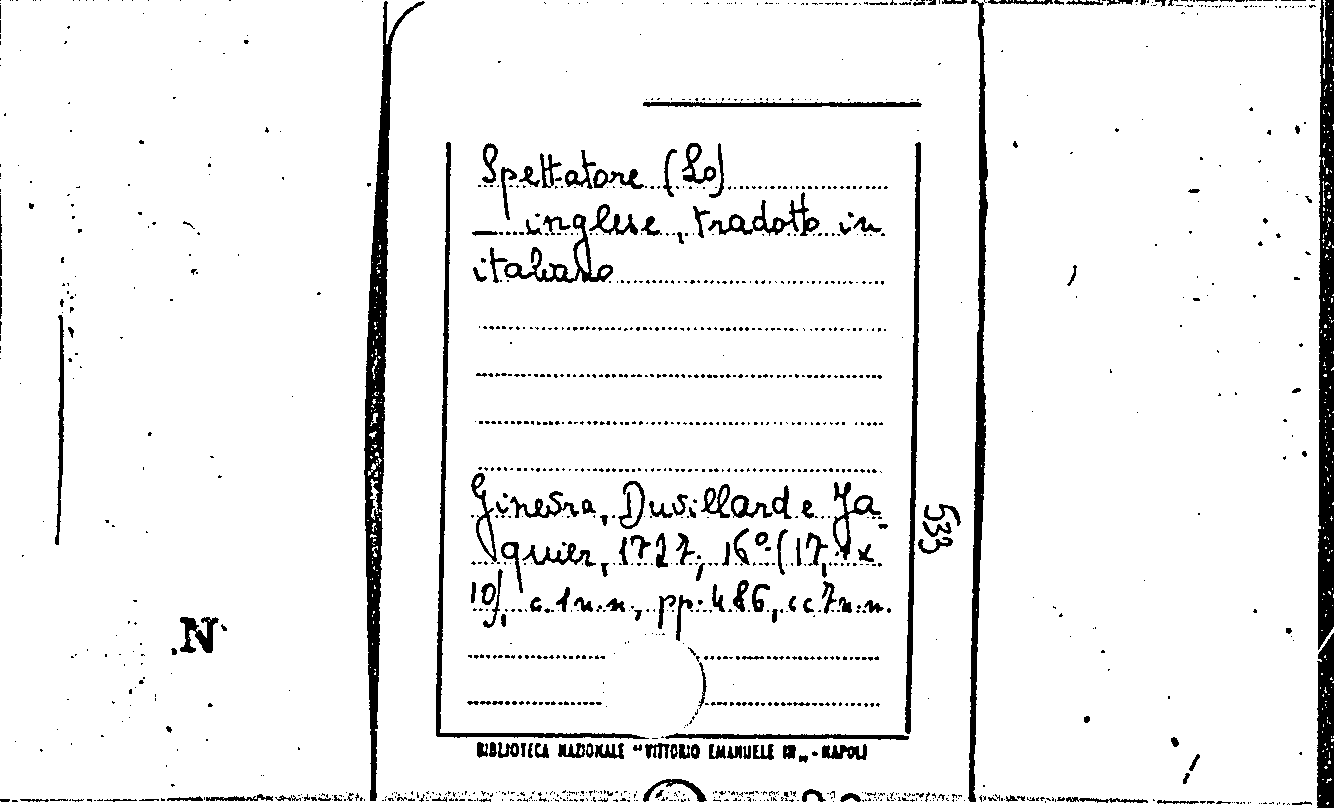 Spettatore (Lo)
— inglese, tradotto in
italiano
Ginevra, Duvillard e Ja-
quier, 1727, 16º (17, x
10), c. 1 n.n., pp. 486, cc 7 n.n.
533
N
BIBLIOTECA NAZIONALE "VITTORIO EMANUELE III„ - NAPOLI